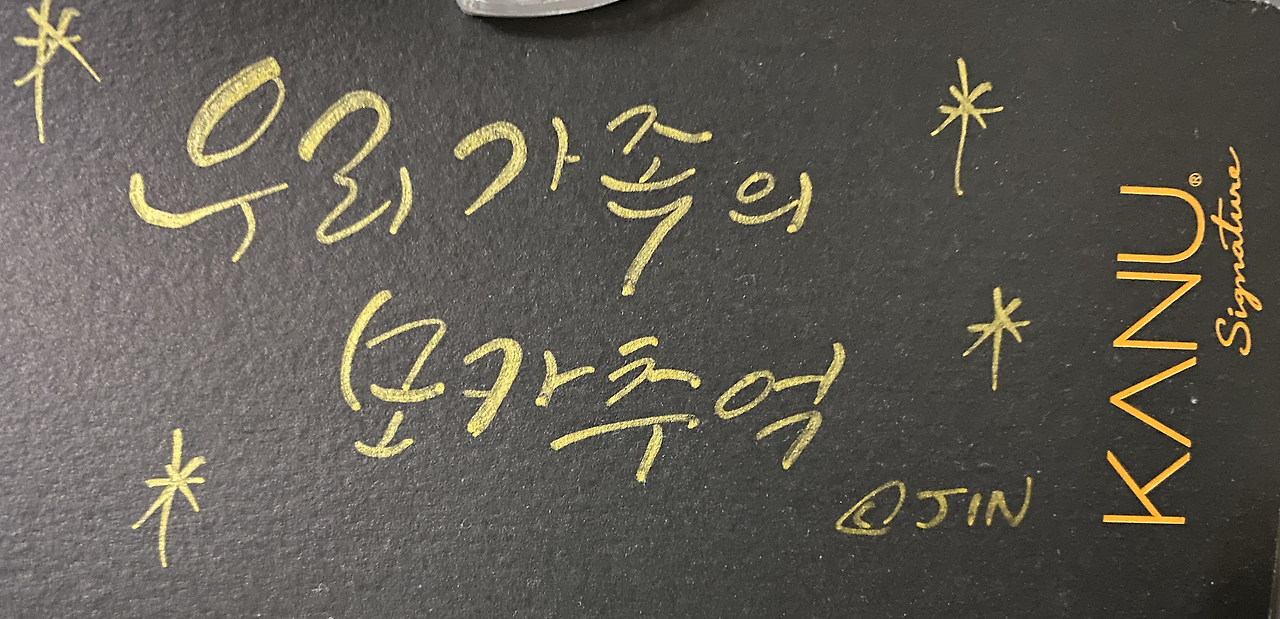 우리가족의
포카추억
©JIN
KANU®
Signature